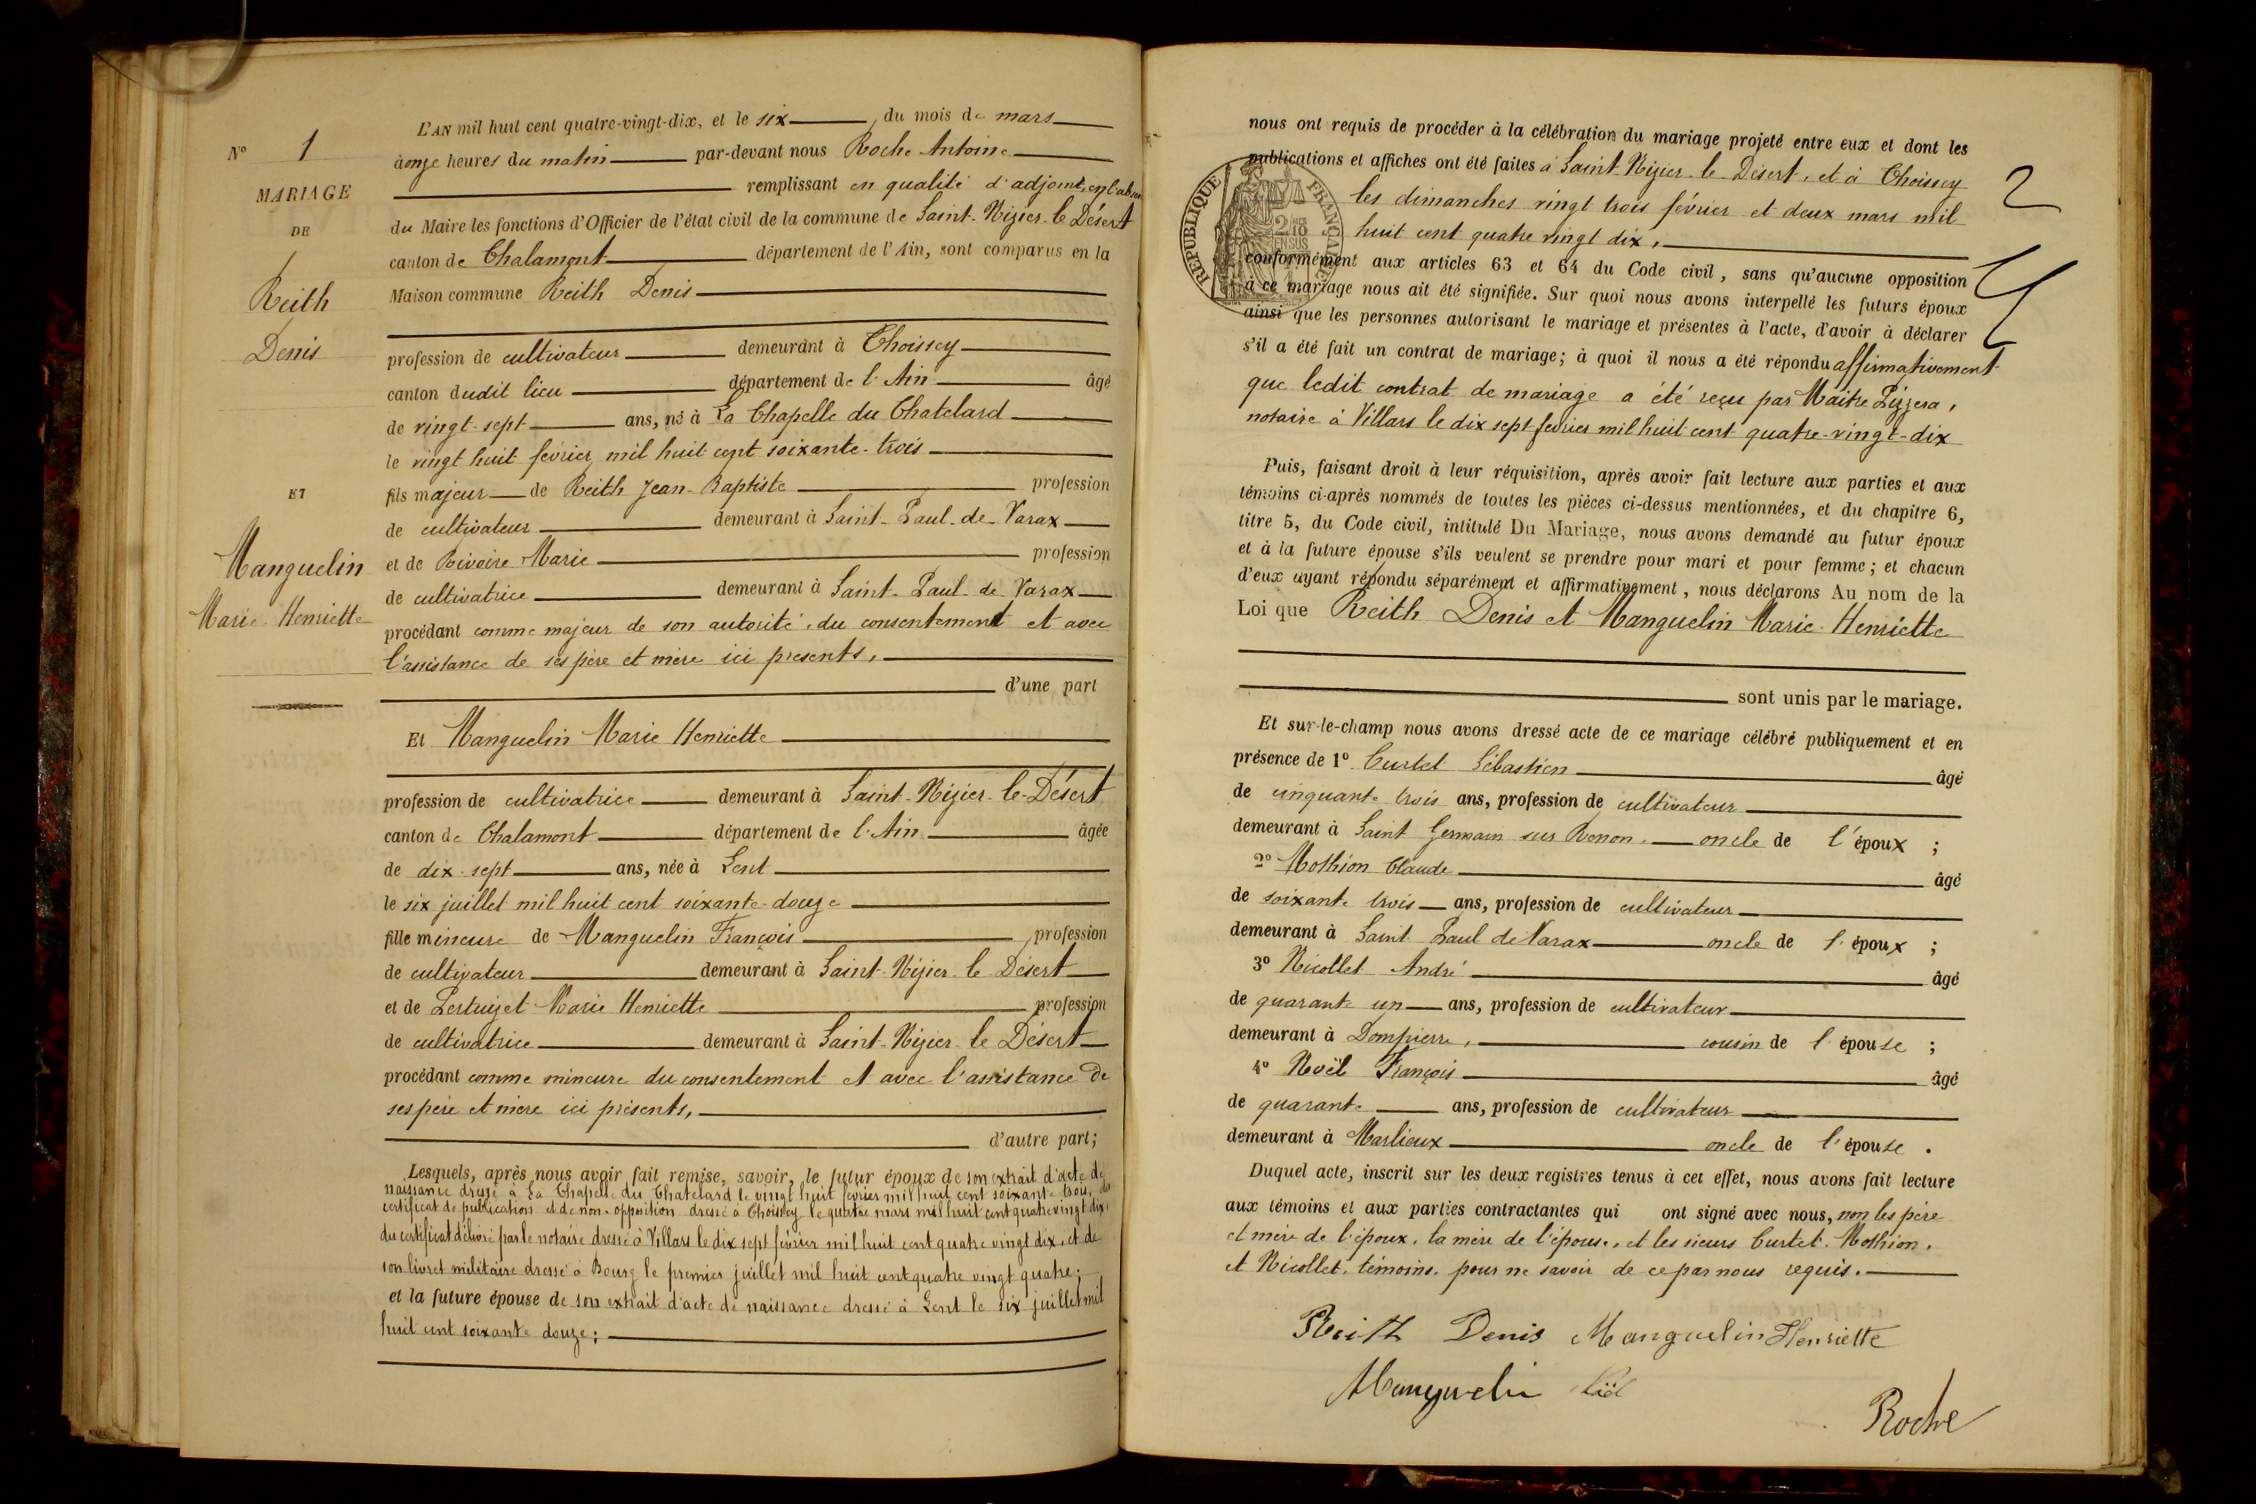 N° 1
MARIAGE
DE
Reith
Denis
ET
Manguelin
Marie Henriette
L'AN mil huit cent quatre-vingt-dix, et le six du mois de mars
à onze heures du matin par-devant nous Roche Antoine
remplissant en qualité d'adjoint, en l'absence
du Maire les fonctions d'Officier de l'état civil de la commune de Saint-Nizier-le-Désert
canton de Chalamont département de l'Ain, sont comparus en la
Maison commune Reith Denis
profession de cultivateur demeurant à Thoissey
canton dudit lieu département de l'Ain âgé
de vingt-sept ans, né à La Chapelle du Chatelard
le vingt huit février mil huit cent soixante-trois
fils majeur de Reith Jean-Baptiste profession
de cultivateur demeurant à Saint-Paul-de-Varax
et de Rivoire Marie profession
de cultivatrice demeurant à Saint-Paul-de-Varax
procédant comme majeur de son autorité, du consentement et avec
l'assistance de ses père et mère ici présents,
d'une part
Et Manguelin Marie Henriette
profession de cultivatrice demeurant à Saint-Nizier-le-Désert
canton de Chalamont département de l'Ain âgée
de dix-sept ans, née à Lent
le six juillet mil huit cent soixante-douze
fille mineure de Manguelin François profession
de cultivateur demeurant à Saint-Nizier-le Désert
et de Pertuizet Marie Henriette profession
de cultivatrice demeurant à Saint-Nizier-le Désert
procédant comme mineure du consentement et avec l'assistance de
ses père et mère ici présents,
d'autre part;
Lesquels, après nous avoir fait remise, savoir, le futur époux de son extrait d'acte de
naissance dressé à La Chapelle du Chatelard le vingt huit février mil huit cent soixante trois, du
certificat de publication et de non-opposition dressé à Thoissey le quatre mars mil huit cent quatre vingt dix,
du certificat délivré par le notaire dressé à Villars le dix sept février mil huit cent quatre vingt dix, et de
son livret militaire dressé à Bourg le premier juillet mil huit cent quatre vingt quatre;
et la future épouse de son extrait d'acte de naissance dressé à Lent le six juillet mil
huit cent soixante douze;
nous ont requis de procéder à la célébration du mariage projeté entre eux et dont les
publications et affiches ont été faites à Saint-Nizier-le-Désert, et à Thoissey
les dimanches vingt trois février et deux mars mil
huit cent quatre vingt dix,
RÉPUBLIQUE FRANÇAISE
2
conformément aux articles 63 et 64 du Code civil, sans qu'aucune opposition
à ce mariage nous ait été signifiée. Sur quoi nous avons interpellé les futurs époux
ainsi que les personnes autorisant le mariage et présentes à l'acte, d'avoir à déclarer
s'il a été fait un contrat de mariage; à quoi il nous a été répondu affirmativement
que ledit contrat de mariage a été reçu par Maître Pizzera,
notaire à Villars le dix sept février mil huit cent quatre-vingt-dix
Puis, faisant droit à leur réquisition, après avoir fait lecture aux parties et aux
témoins ci-après nommés de toutes les pièces ci-dessus mentionnées, et du chapitre 6,
titre 5, du Code civil, intitulé Du Mariage, nous avons demandé au futur époux
et à la future épouse s'ils veulent se prendre pour mari et pour femme; et chacun
d'eux ayant répondu séparément et affirmativement, nous déclarons Au nom de la
Loi que Reith Denis et Manguelin Marie-Henriette
sont unis par le mariage.
Et sur-le-champ nous avons dressé acte de ce mariage célébré publiquement et en
présence de 1° Curtet Sébastien âgé
de cinquante trois ans, profession de cultivateur
demeurant à Saint Germain sur Renon, oncle de l'époux ;
2° Mothion Claude âgé
de soixante trois ans, profession de cultivateur
demeurant à Saint Paul de Varax oncle de l'époux ;
3° Nicollet André âgé
de quarante un ans, profession de cultivateur
demeurant à Dompierre, cousin de l'épouse ;
4° Noël François âgé
de quarante ans, profession de cultivateur
demeurant à Marlieux oncle de l'épouse .
Duquel acte, inscrit sur les deux registres tenus à cet effet, nous avons fait lecture
aux témoins et aux parties contractantes qui ont signé avec nous, non les père
et mère de l'époux, la mère de l'épouse, et les sieurs Curtet, Mothion,
et Nicollet, témoins, pour ne savoir de ce par nous requis.
Reith Denis Manguelin Henriette
Manguelin
Roche